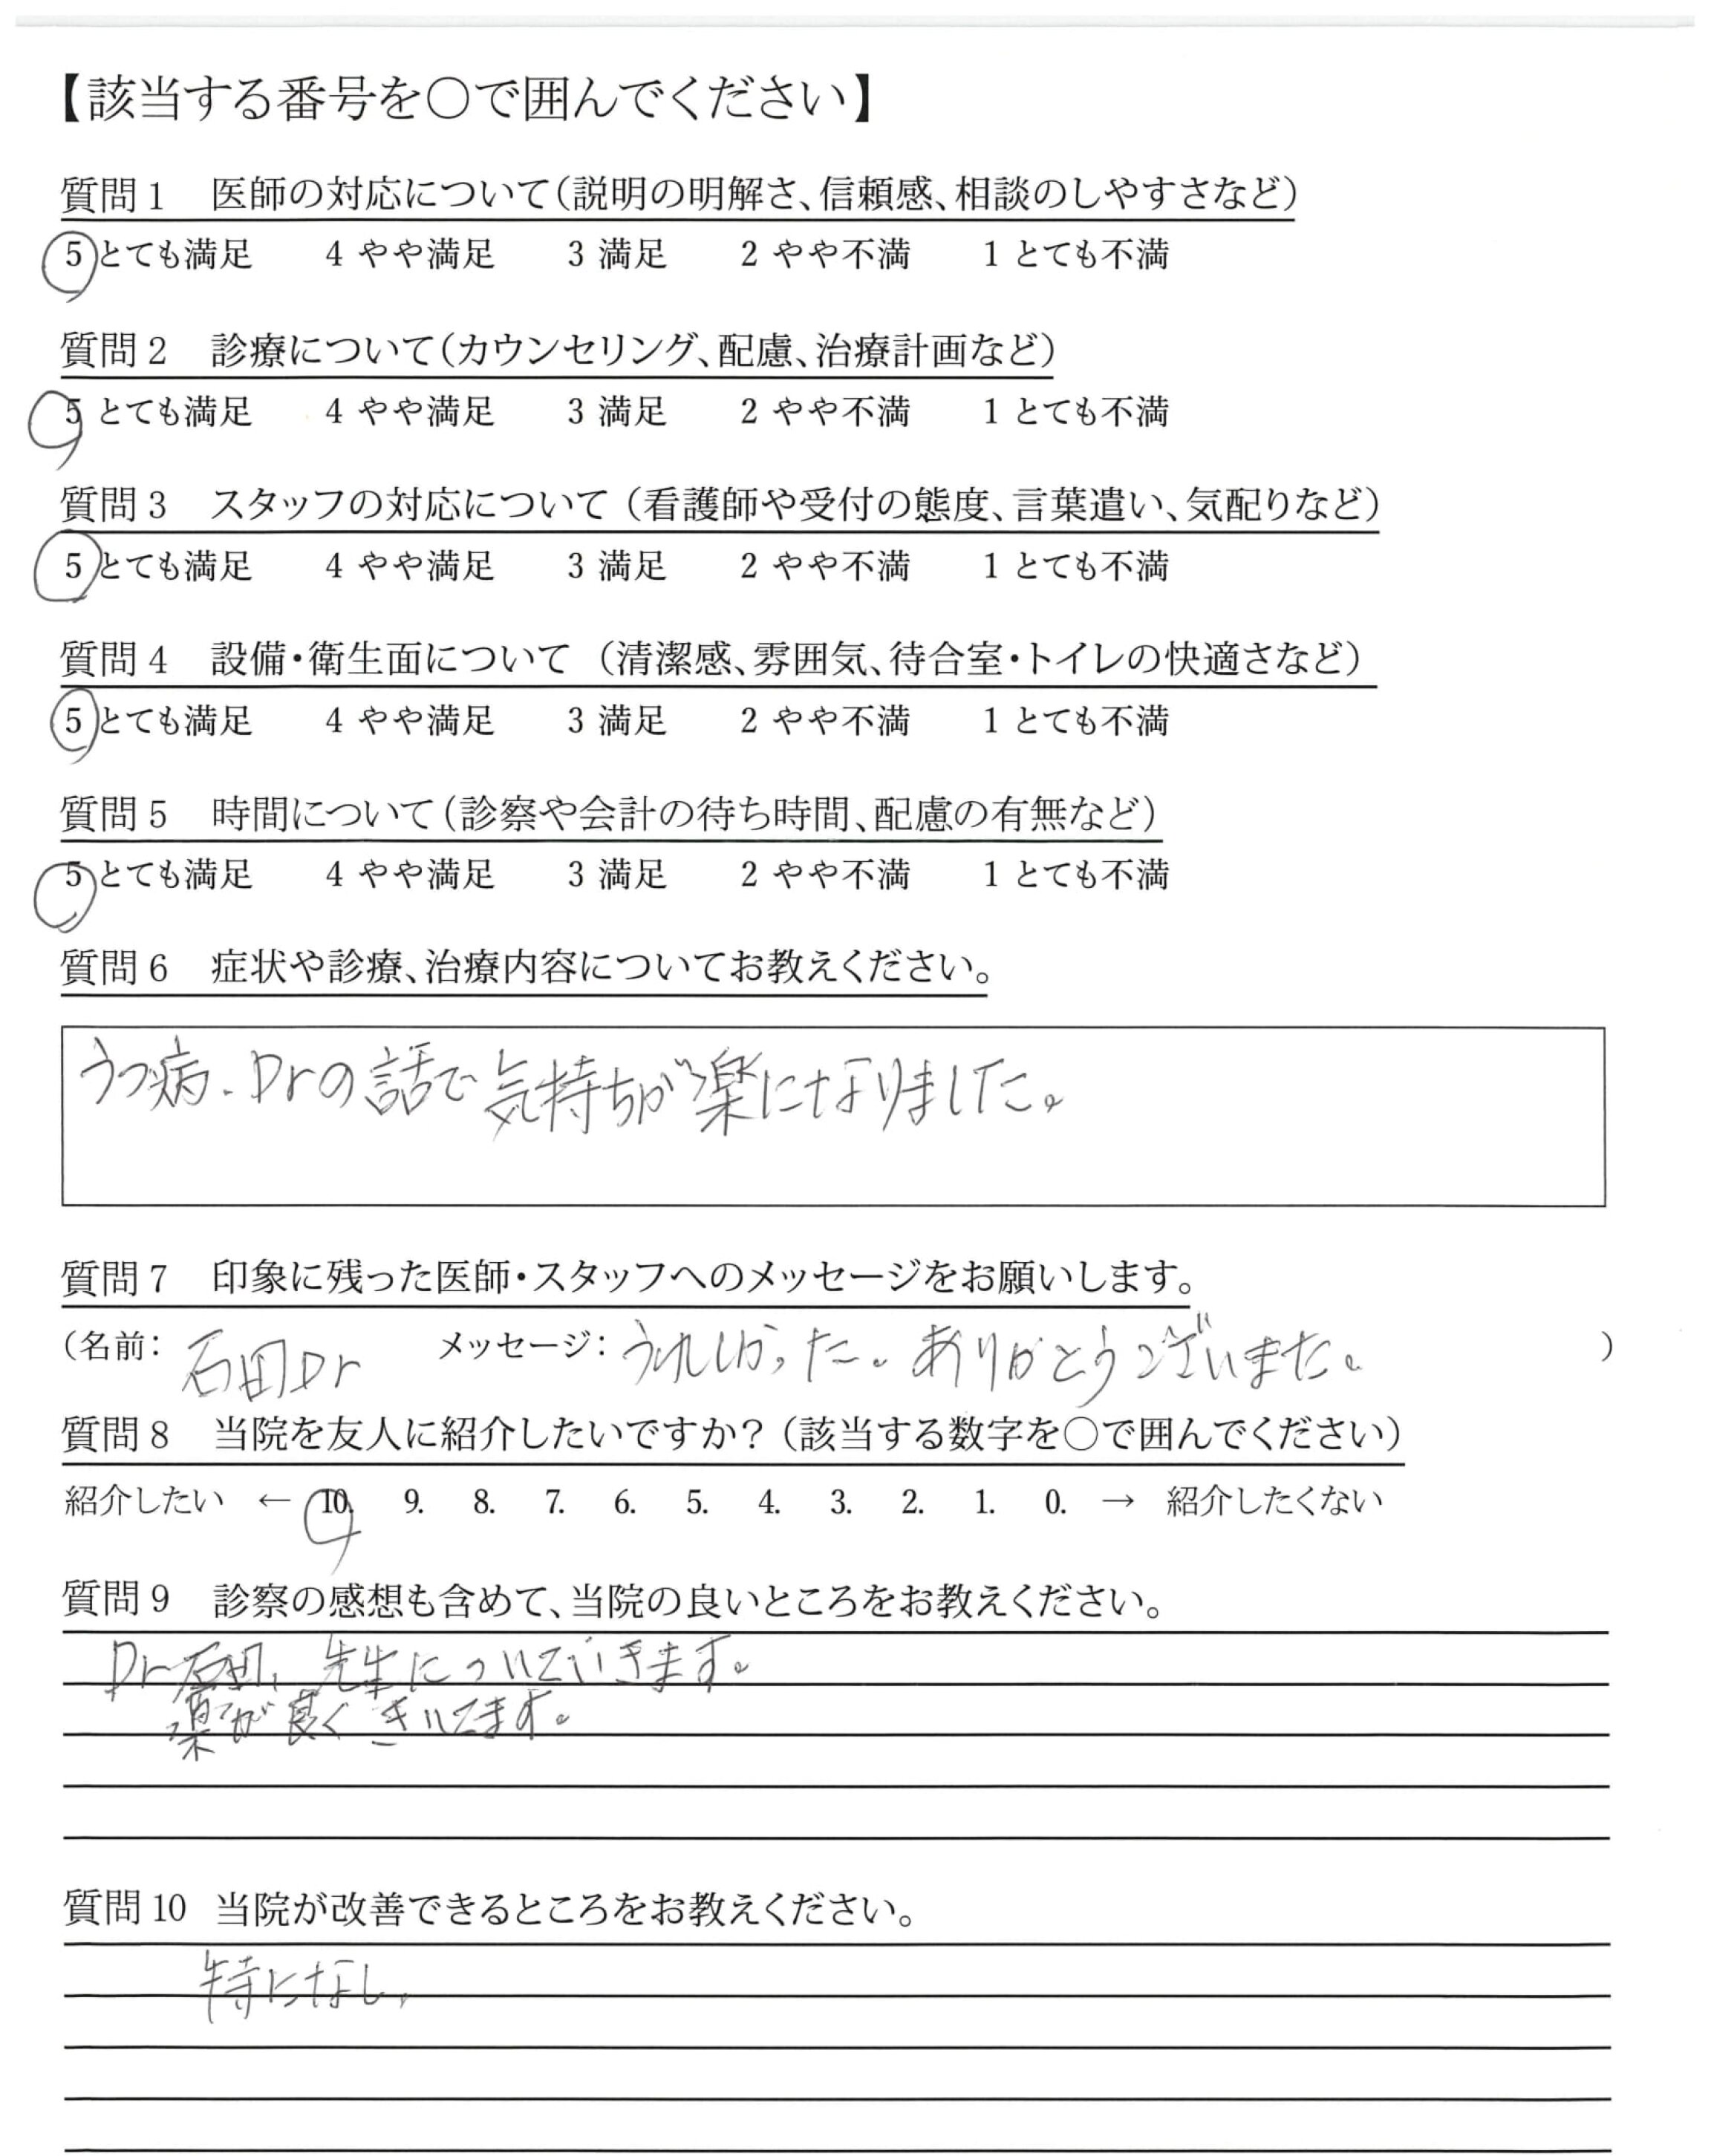 【該当する番号を○で囲んでください】
質問1　医師の対応について(説明の明解さ、信頼感、相談のしやすさなど)
5 とても満足　4 やや満足　3 満足　2 やや不満　1 とても不満
質問2　診療について(カウンセリング、配慮、治療計画など)
5 とても満足　4 やや満足　3 満足　2 やや不満　1 とても不満
質問3　スタッフの対応について (看護師や受付の態度、言葉遣い、気配りなど)
5 とても満足　4 やや満足　3 満足　2 やや不満　1 とても不満
質問4　設備・衛生面について (清潔感、雰囲気、待合室・トイレの快適さなど)
5 とても満足　4 やや満足　3 満足　2 やや不満　1 とても不満
質問5　時間について(診察や会計の待ち時間、配慮の有無など)
5 とても満足　4 やや満足　3 満足　2 やや不満　1 とても不満
質問6　症状や診療、治療内容についてお教えください。
うつ病. Drの話で気持ちが楽になりました。
質問7　印象に残った医師・スタッフへのメッセージをお願いします。
(名前: 石田Dr　メッセージ: うれしかった。ありがとうございまた。)
質問8　当院を友人に紹介したいですか? (該当する数字を○で囲んでください)
紹介したい ← 10. 9. 8. 7. 6. 5. 4. 3. 2. 1. 0. → 紹介したくない
質問9　診察の感想も含めて、当院の良いところをお教えください。
Dr石田、先生についていきます。
薬が良くきいてます。
質問10 当院が改善できるところをお教えください。
特になし、